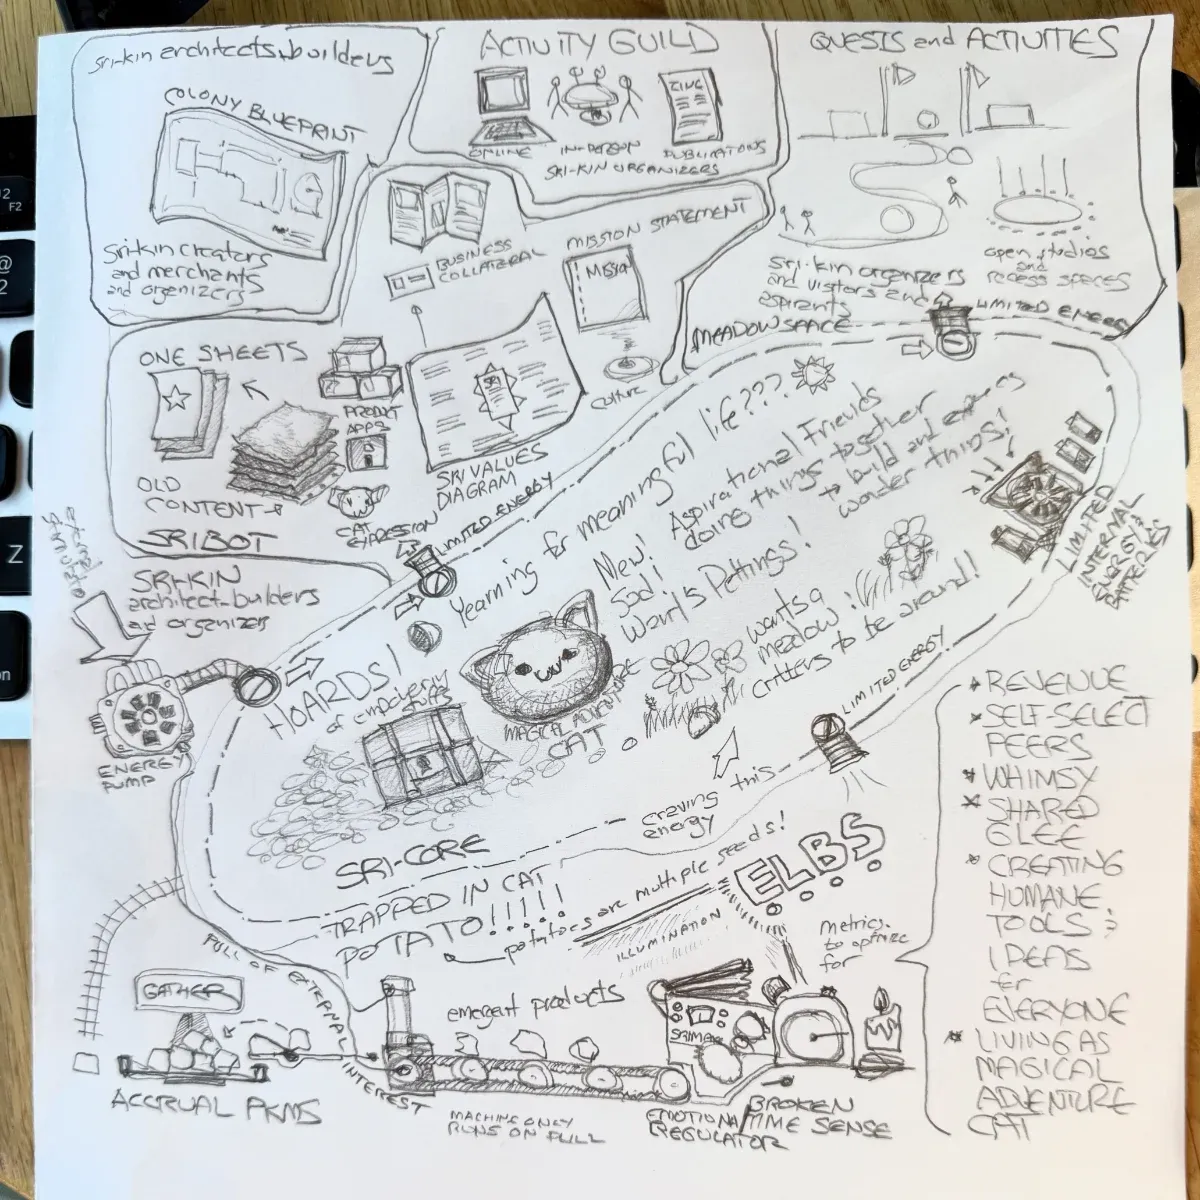 SRI-kin architects-builders
COLONY BLUEPRINT
Sri-kin creators
and merchants
and organizers
ACTIVITY GUILD
ZINE
ONLINE
IN-PERSON
PUBLICATIONS
SRI-KIN ORGANIZERS
QUESTS and ACTIVITIES
open studios
and
recess spaces
Sri-kin organizers
and visitors and
aspirants
MEADOW SPACE
LIMITED ENERGY
BUSINESS
COLLATERAL
MISSION STATEMENT
culture
ONE SHEETS
OLD
CONTENT
PRODUCT
APPS
CAT
EXPRESSION
SRI VALUES
DIAGRAM
SRIBOT
LIMITED ENERGY
SRI-KIN
architect-builders
and organizers
external
ENERGY
PUMP
Yearning for meaningful life???
New!
Sad!
Want's Pettings!
Aspirational Friends
doing things together
to build and
wonder things!
LIMITED
INTERNAL
ENERGY
BATTERIES
HOARDS!
of
stuffs
MAGICAL ADVENTURE
CAT
wants a
meadow!
critters to be around!
LIMITED ENERGY
craving this
energy
SRI-CORE
TRAPPED IN CAT
POTATO!!!!!
potatoes are multiple seeds!
ILLUMINATION
ELBS
metrics
to optimize
for
* REVENUE
* SELF-SELECT
PEERS
* WHIMSY
* SHARED
GLEE
* CREATING
HUMANE
TOOLS &
IDEAS
for
EVERYONE
* LIVING AS
MAGICAL
ADVENTURE
CAT
PULL OF EXTERNAL INTEREST
GATHER
ACCRUAL PKMS
emergent products
MACHINE ONLY
RUNS ON PULL
EMOTIONAL
REGULATOR
BROKEN
TIME SENSE